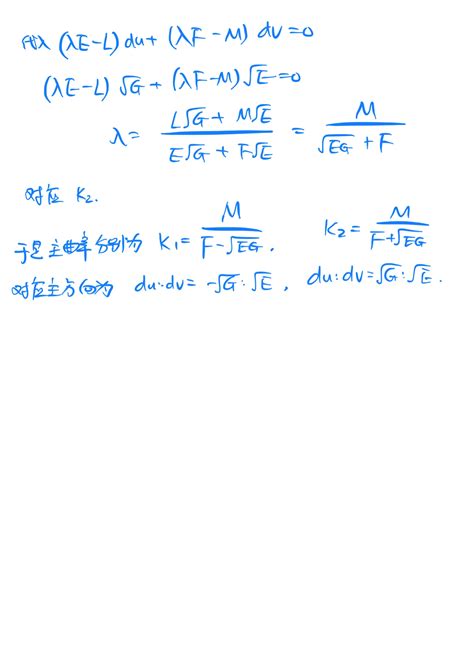 代入 (λE-L) du + (λF-M) dv = 0
(λE-L) √G + (λF-M) √E = 0
λ = (L√G + M√E) / (E√G + F√E) = M / (√EG + F)
对应 K₂.
于是主曲率分别为 K₁ = M / (F-√EG), K₂ = M / (F+√EG)
对应主方向为 du:dv = -√G:√E, du:dv = √G:√E.